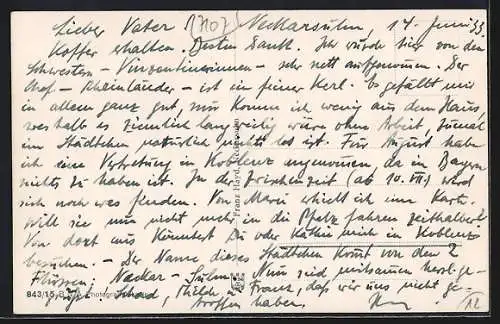 Lieber Vater! (NOT) Neckarsulm, 17. Juni 33
Koffer erhalten. Besten Dank. Ich wurde hier von den
Schwestern - Vinzentinerinnen - sehr nett aufgenommen. Der
Chef - Rheinländer - ist ein feiner Kerl. Es gefällt mir
in allem ganz gut, nur komme ich wenig aus dem Haus,
weshalb es ziemlich langweilig wäre ohne Arbeit, zumal
im Städtchen natürlich nichts los ist. Für August habe
ich eine Vertretung in Koblenz angenommen, da in Bayern
nichts zu haben ist. In der Zwischenzeit (ab 10. VII.) wird
sich noch was finden. Von Marie erhielt ich eine Karte.
Will sie nun nicht mehr in die Pfalz fahren zeithalber?
Von dort aus könntest Du oder Käthe mich in Koblenz
besuchen. - Der Name dieses Städtchen kommt von den 2
Flüssen: Neckar - Sulm. Nun sind mitsammen herzl. ge-
grüßt! Schad, Franz, daß wir uns nicht ge-
troffen haben.
843/15 B
Franz Hard
12